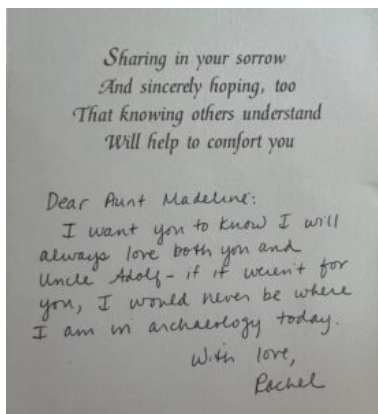 Sharing in your sorrow
And sincerely hoping, too
That knowing others understand
Will help to comfort you
Dear Aunt Madeline:
I want you to know I will
always love both you and
Uncle Adolf - if it weren't for
you, I would never be where
I am in archaeology today.
With love,
Rachel